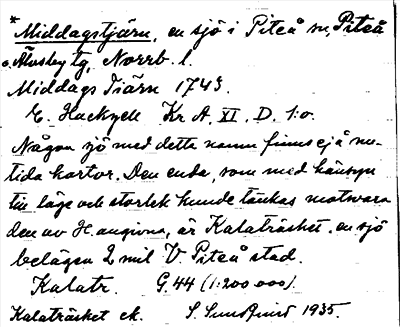 * Middagstjärn, en sjö i Piteå sn, Piteå
o. Älvsby tg, Norrb. l.
Middags Tiärn 1743.
E. Hackzell Kr A. XI. D. 1:o.
Någon sjö med detta namn finns ej å nu-
tida kartor. Den enda, som med hänsyn
till läge och storlek kunde tänkas motsvara
den av H. angivna, är Kalaträsket, en sjö
belägen 2 mil V Piteå stad.
Kalatr. G. 44 (1:200 000).
Kalaträsket ek. S. 1935.